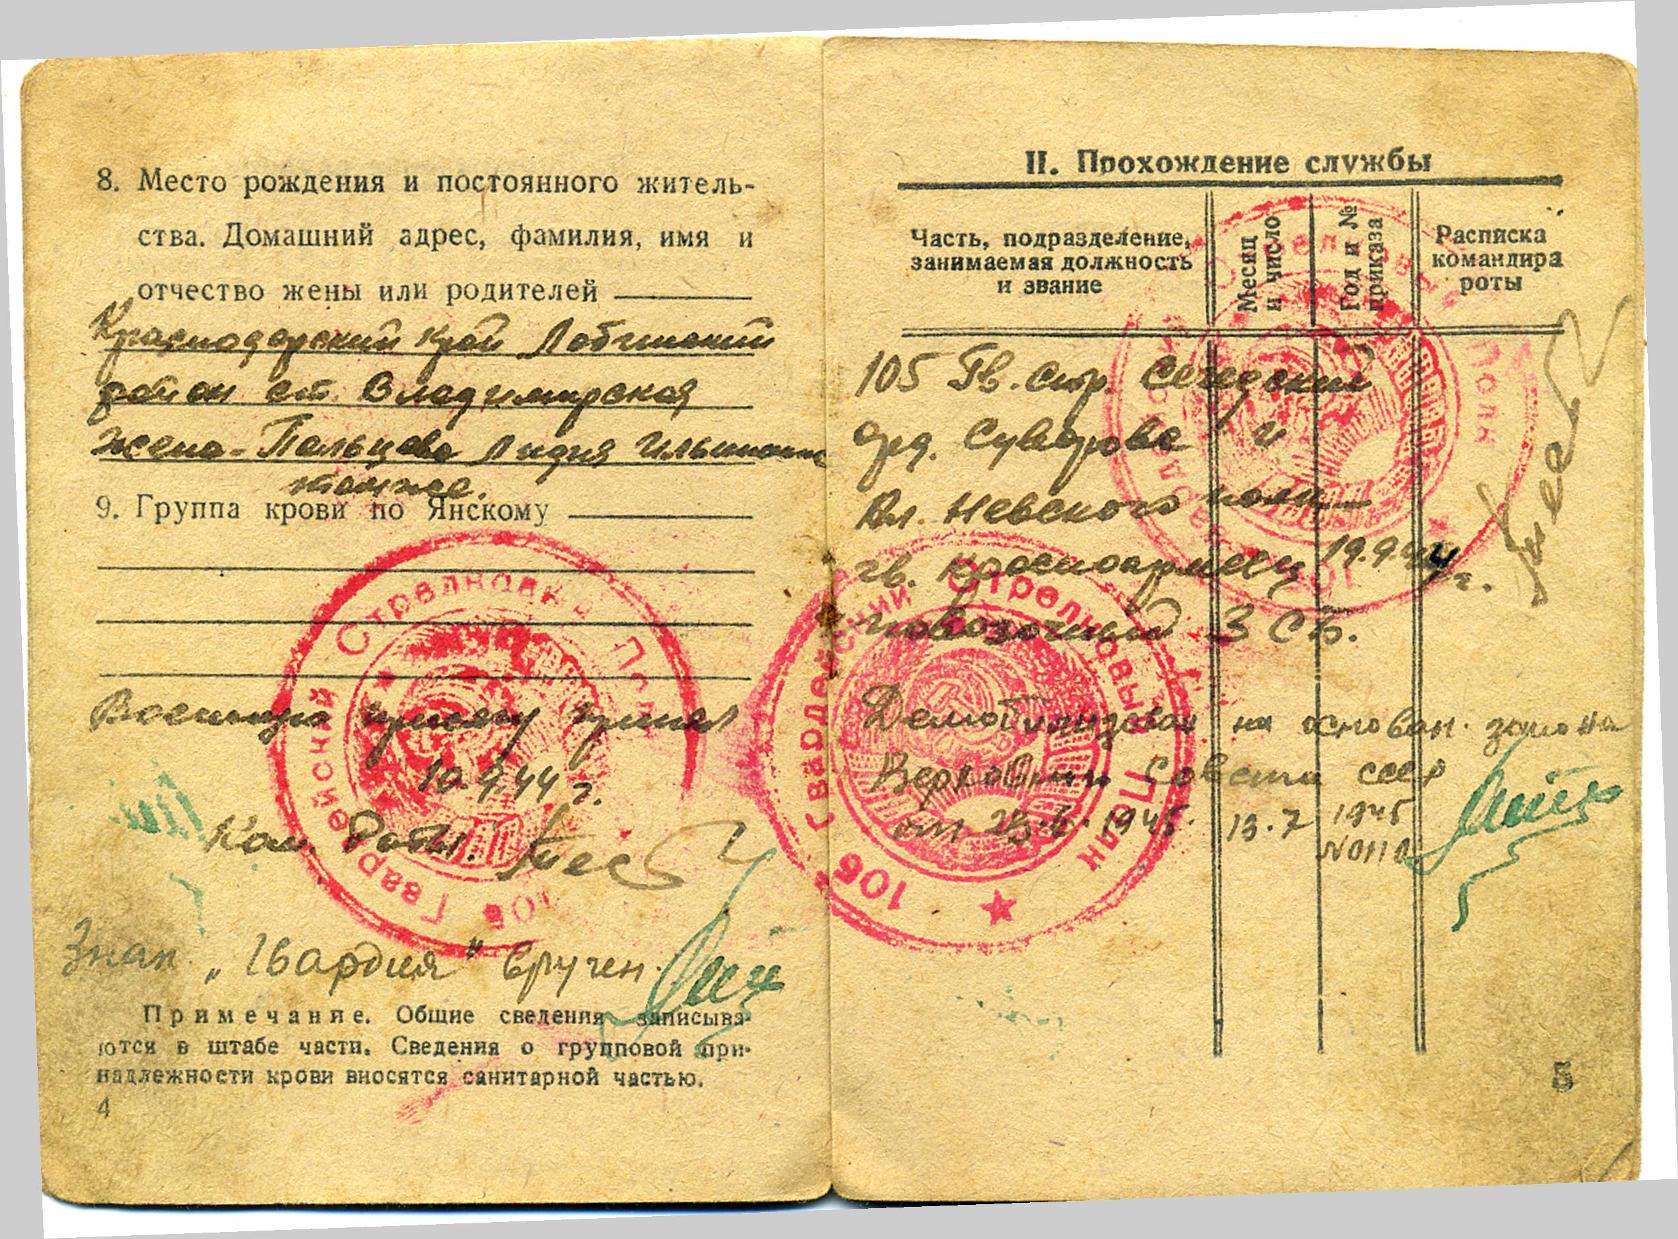 8. Место рождения и постоянного житель-
ства. Домашний адрес, фамилия, имя и
отчество жены или родителей
Краснодарский край Лабинский
район ст. Владимирская
жена - Пальцева Лидия Ильинич
там же.
9. Группа крови по Янскому
Военную присягу принял
10.9.44 г.
Ком. Роты.
Знак „Гвардия" вручен.
Примечание. Общие сведения записыва-
ются в штабе части. Сведения о групповой при-
надлежности крови вносятся санитарной частью.
4
Гвардейский Стрелковый Полк
106
II. Прохождение службы
Часть, подразделение,
занимаемая должность
и звание
Месяц
и число
Год и №
приказа
Расписка
командира
роты
105 Гв. стр.
орд. Суворова и
Ал. Невского полк
гв. Красноармеец 19.9.44 г.
повозочный 3 СБ.
Демобилизован на основан. закона
Верховного Совета СССР
от 23.6.1945. 13.7 1945
N0110
106 Гвардейский Стрелковый Полк
5